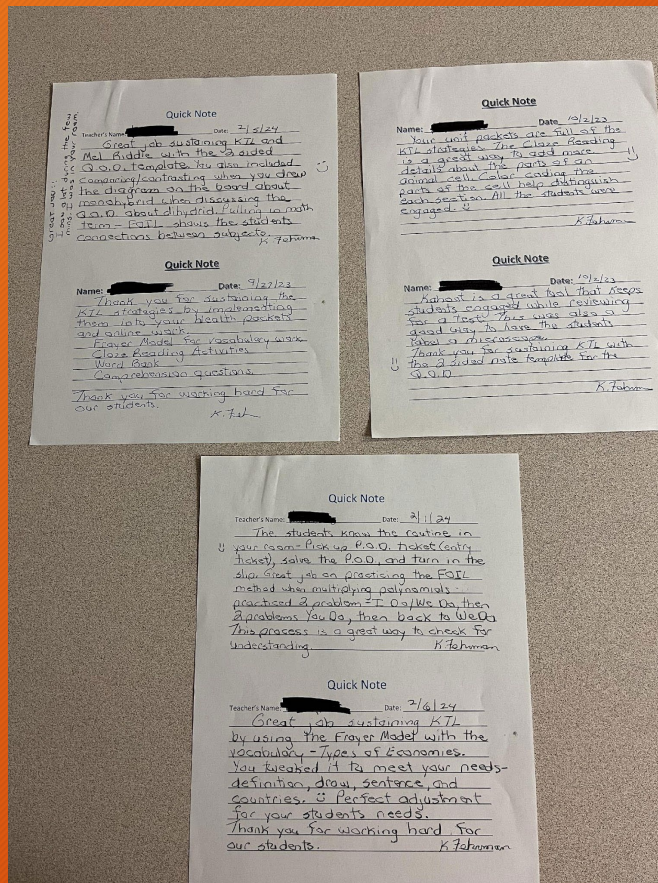 Quick Note
Teacher's Name: Date: 2/5/24
Great job sustaining KTL and
Mel Riddle with the 2 sided
Q.O.D. template. You also included
comparing/contrasting when you drew
the diagram on the board about
monohybrid when discussing the
Q.O.D about dihybrid. Pulling in math
term - FOIL shows the students
connections between subjects.
K. Fehrman
Great
during the few
in your room.
Quick Note
Name: Date: 9/27/23
Thank you for sustaining the
KTL strategies by implementing
them into your health packets
and online work.
Frayer Model for vocabulary work
Cloze Reading Activities
Word Bank
Comprehension questions.
Thank you for working hard for
our students.
K. Feh
Quick Note
Name: Date 10/2/23
Your unit packets are full of the
KTL strategies. The Cloze Reading
is a great way to add more
details about the parts of an
animal cell. Color coding the
parts of the cell help distinguish
each section. All the students were
engaged.
K. Fehrman
Quick Note
Name: Date: 10/2/23
Kahoot is a great tool that keeps
students engaged while reviewing
for a test. This was also a
good way to have the students
label a microscope.
Thank you for sustaining KTL with
the 2 sided note template for the
Q.O.D
K. Fehrman
Quick Note
Teacher's Name: Date: 2/1/24
The students know the routine in
your room - Pick up P.O.D. ticket (entry
ticket), solve the P.O.D, and turn in the
slip. Great job on practicing the FOIL
method when multiplying polynomials -
practiced 2 problem - I Do/We Do, then
2 problems You Do, then back to We Do
This process is a great way to check for
understanding. K Fehrman
Quick Note
Teacher's Name: Date: 2/6/24
Great job sustaining KTL
by using the Frayer Model with the
vocabulary - Types of Economies.
You tweaked it to meet your needs-
definition, draw, sentence, and
countries. Perfect adjustment
for your students needs.
Thank you for working hard for
our students. K Fehrman